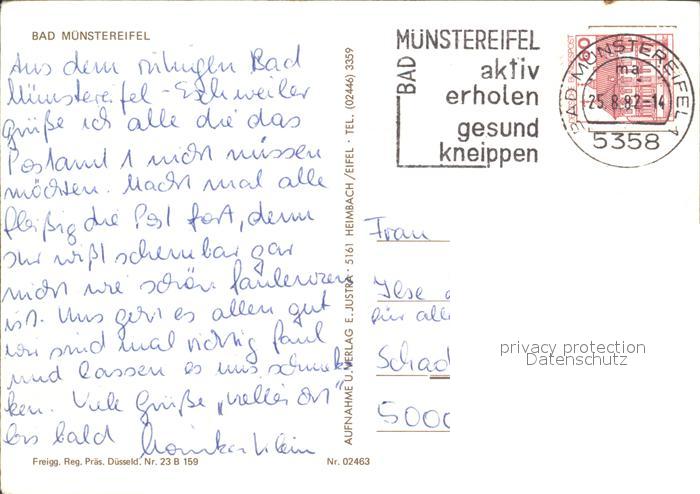 BAD MÜNSTEREIFEL
Aus dem ruhigen Bad
Münstereifel-Eschweiler
grüße ich alle die das
Postamt 1 nicht müssen
möchten. Macht mal alle
fleißig die Post fort, denn
Ihr wißt scheinbar gar
nicht wie schön faulenzen
ist. Uns geht es allen gut
wir sind mal richtig faul
und lassen es uns schmek-
ken. Viele Grüße
bis bald Monika Klein
Freigg. Reg. Präs. Düsseld. Nr. 23 B 159
Nr. 02463
AUFNAHME U. VERLAG E. JUSTRA · 5161 HEIMBACH/EIFEL · TEL. (02446) 3359
BAD
MÜNSTEREIFEL
aktiv
erholen
gesund
kneippen
BAD MÜNSTEREIFEL 1
ma
25.8.82-14
5358
Frau
Ilse
für alle
Schad
5000
privacy protection
Datenschutz